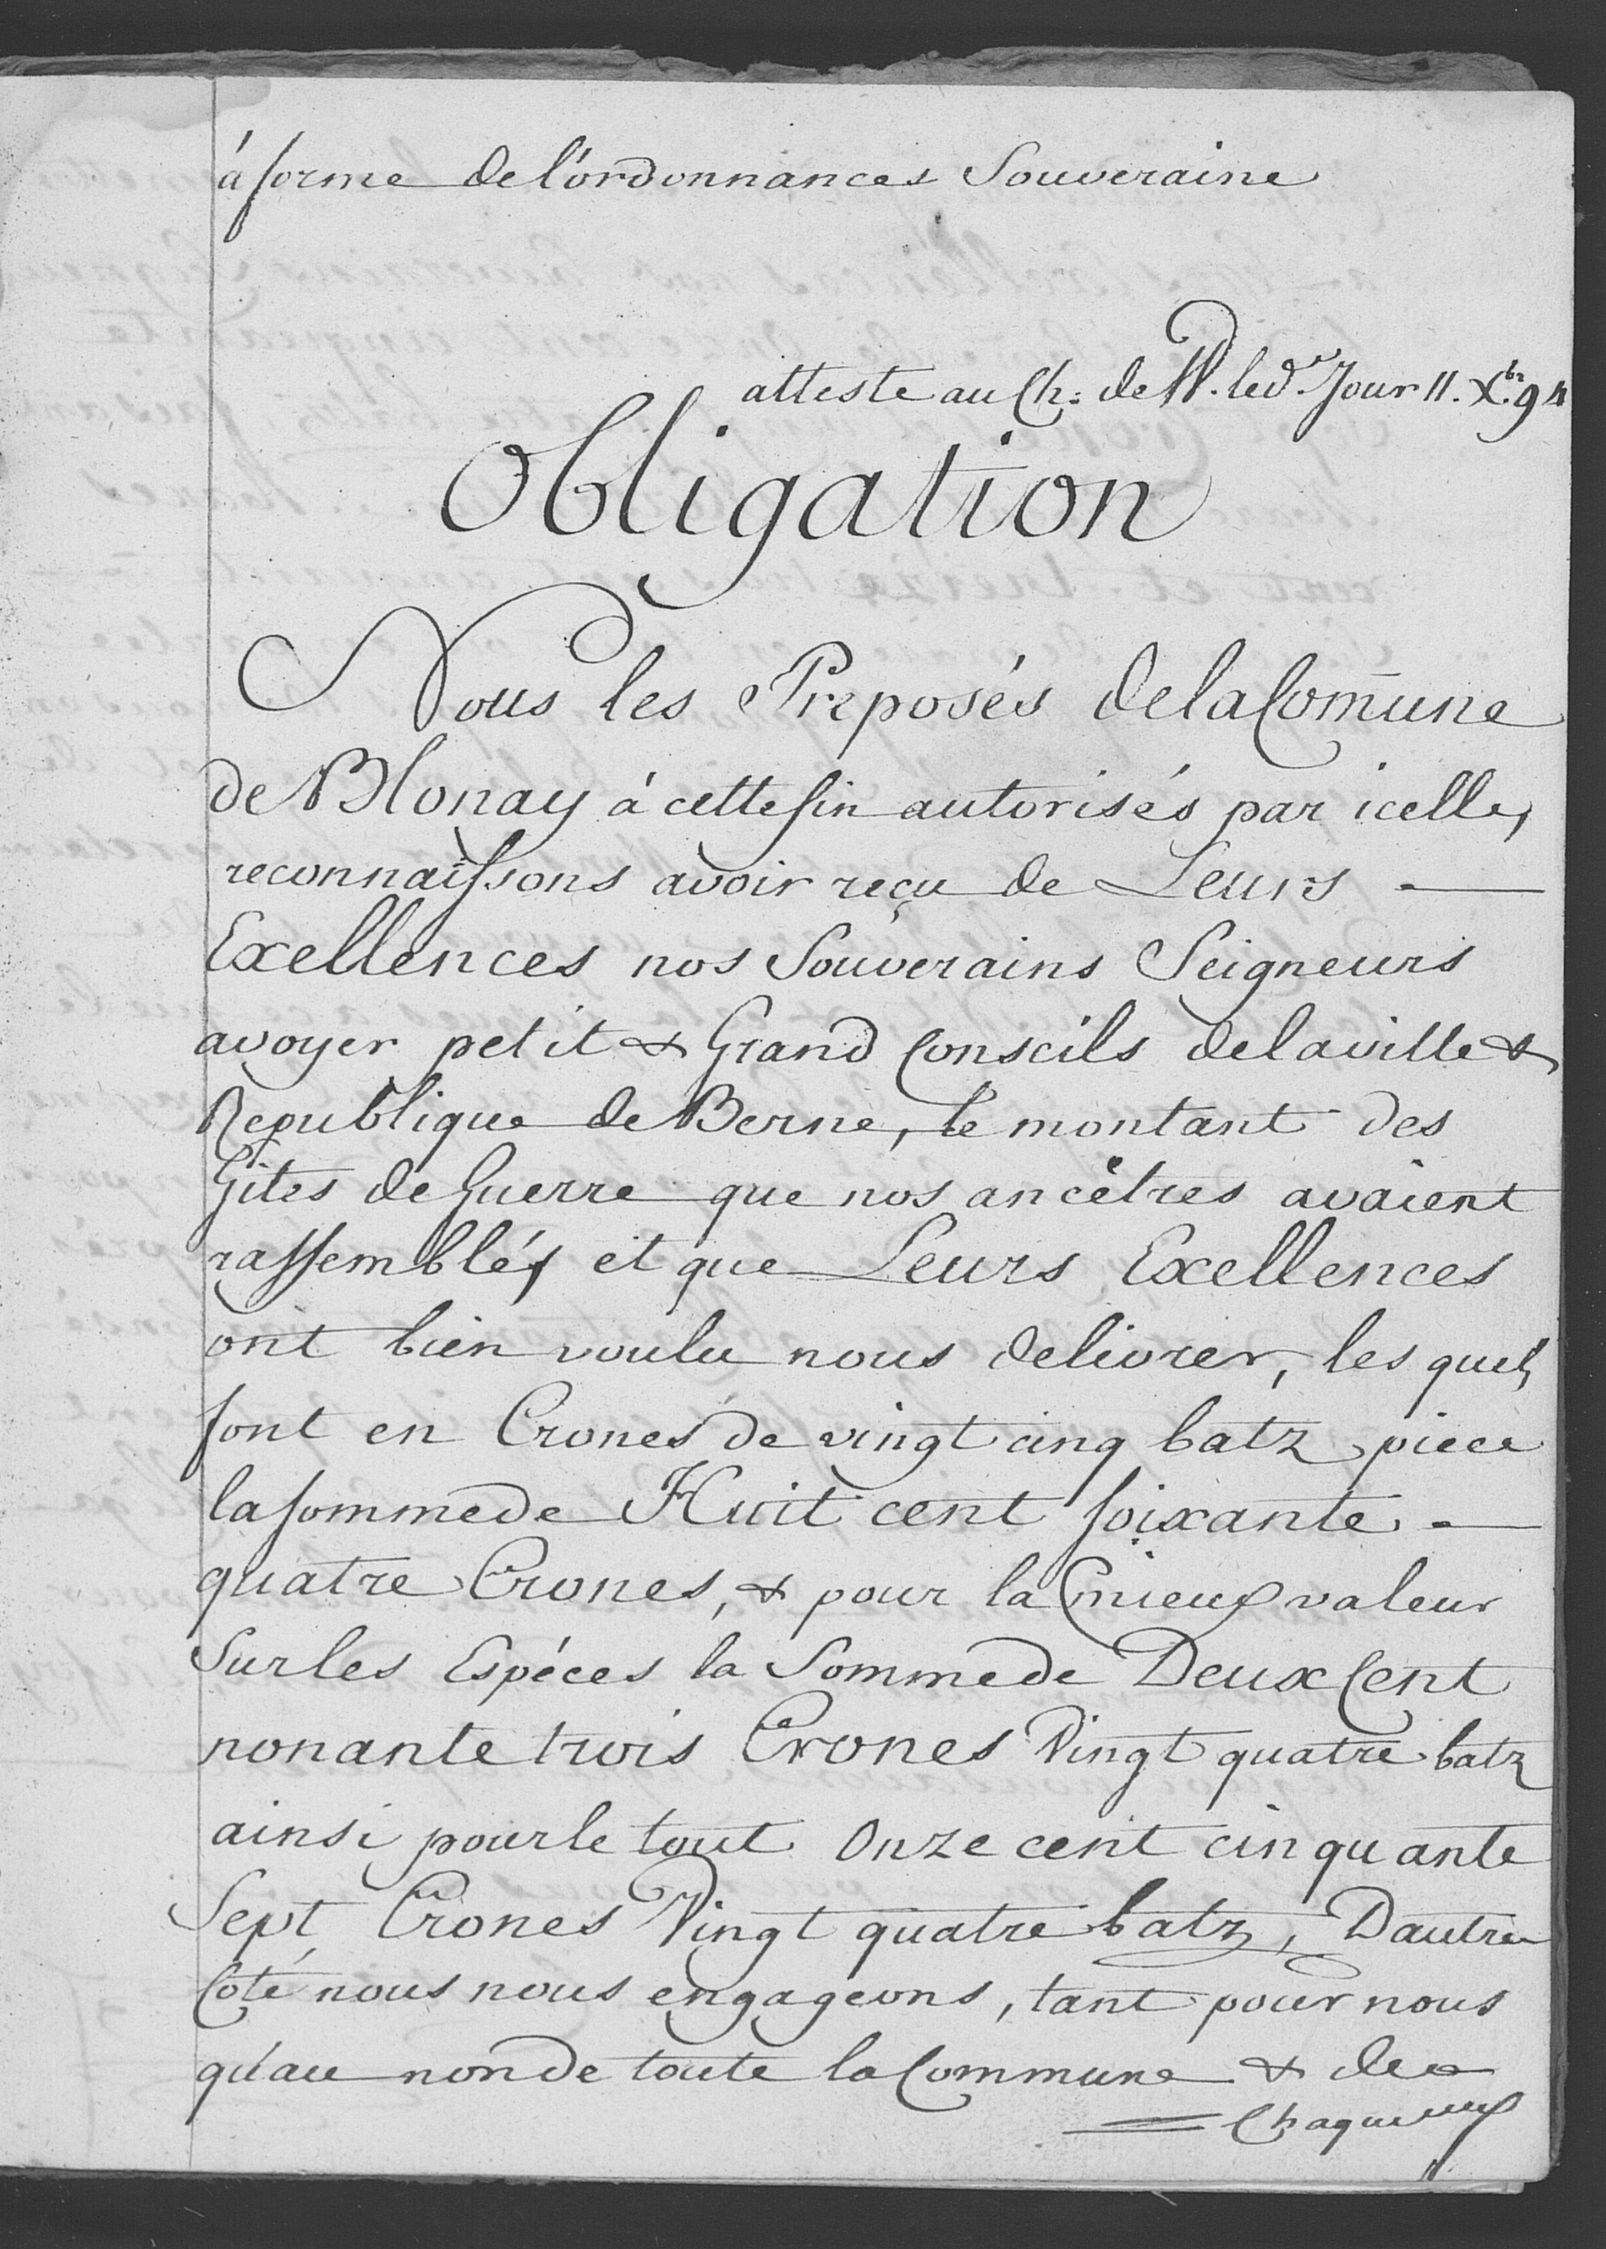 à forme de l'ordonnances Souveraine
atteste au Ch: de W. led.t Jour 11. Xbr. 94
Obligation
Nous les Preposés de la Com̄une
de Blonay à cette fin autorisés par icelle,
reconnaissons avoir reçu de Leurs —
Exellences nos Souverains Seigneurs
avoyer petit & Grand Conseils de la ville &
Republique de Berne, le montant des
Gites de Guerre que nos ancêtres avaient
rassemblés et que Leurs Exellences
ont bien voulu nous delivrer, les quels
font en Crones de vingt cinq batz piece
la somme de Huit cent soixante —
quatre Crones, & pour la mieux valeur
Sur les Espéces la Somme de Deux Cent
nonante trois Crones Vingt quatre batz
ainsi pour le tout Onze cent cinquante
Sept Crones Vingt quatre batz, Dautre
Coté nous nous engageons, tant pour nous
qu'au non de toute la Commune & de
Chaque